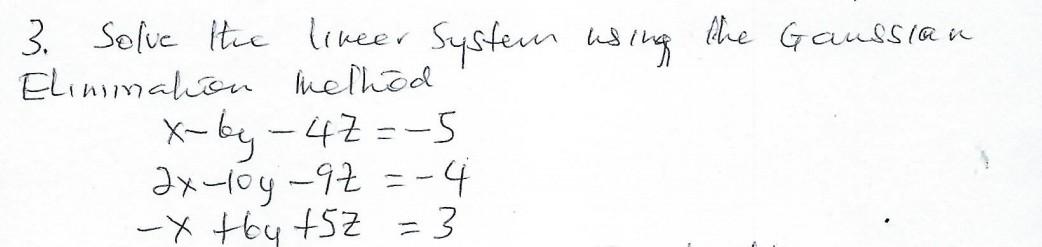 3. Solve the lineer System using the Gaussian
Elimination Method
x-6y-4z=-5
2x-10y-9z=-4
-x+6y+5z=3